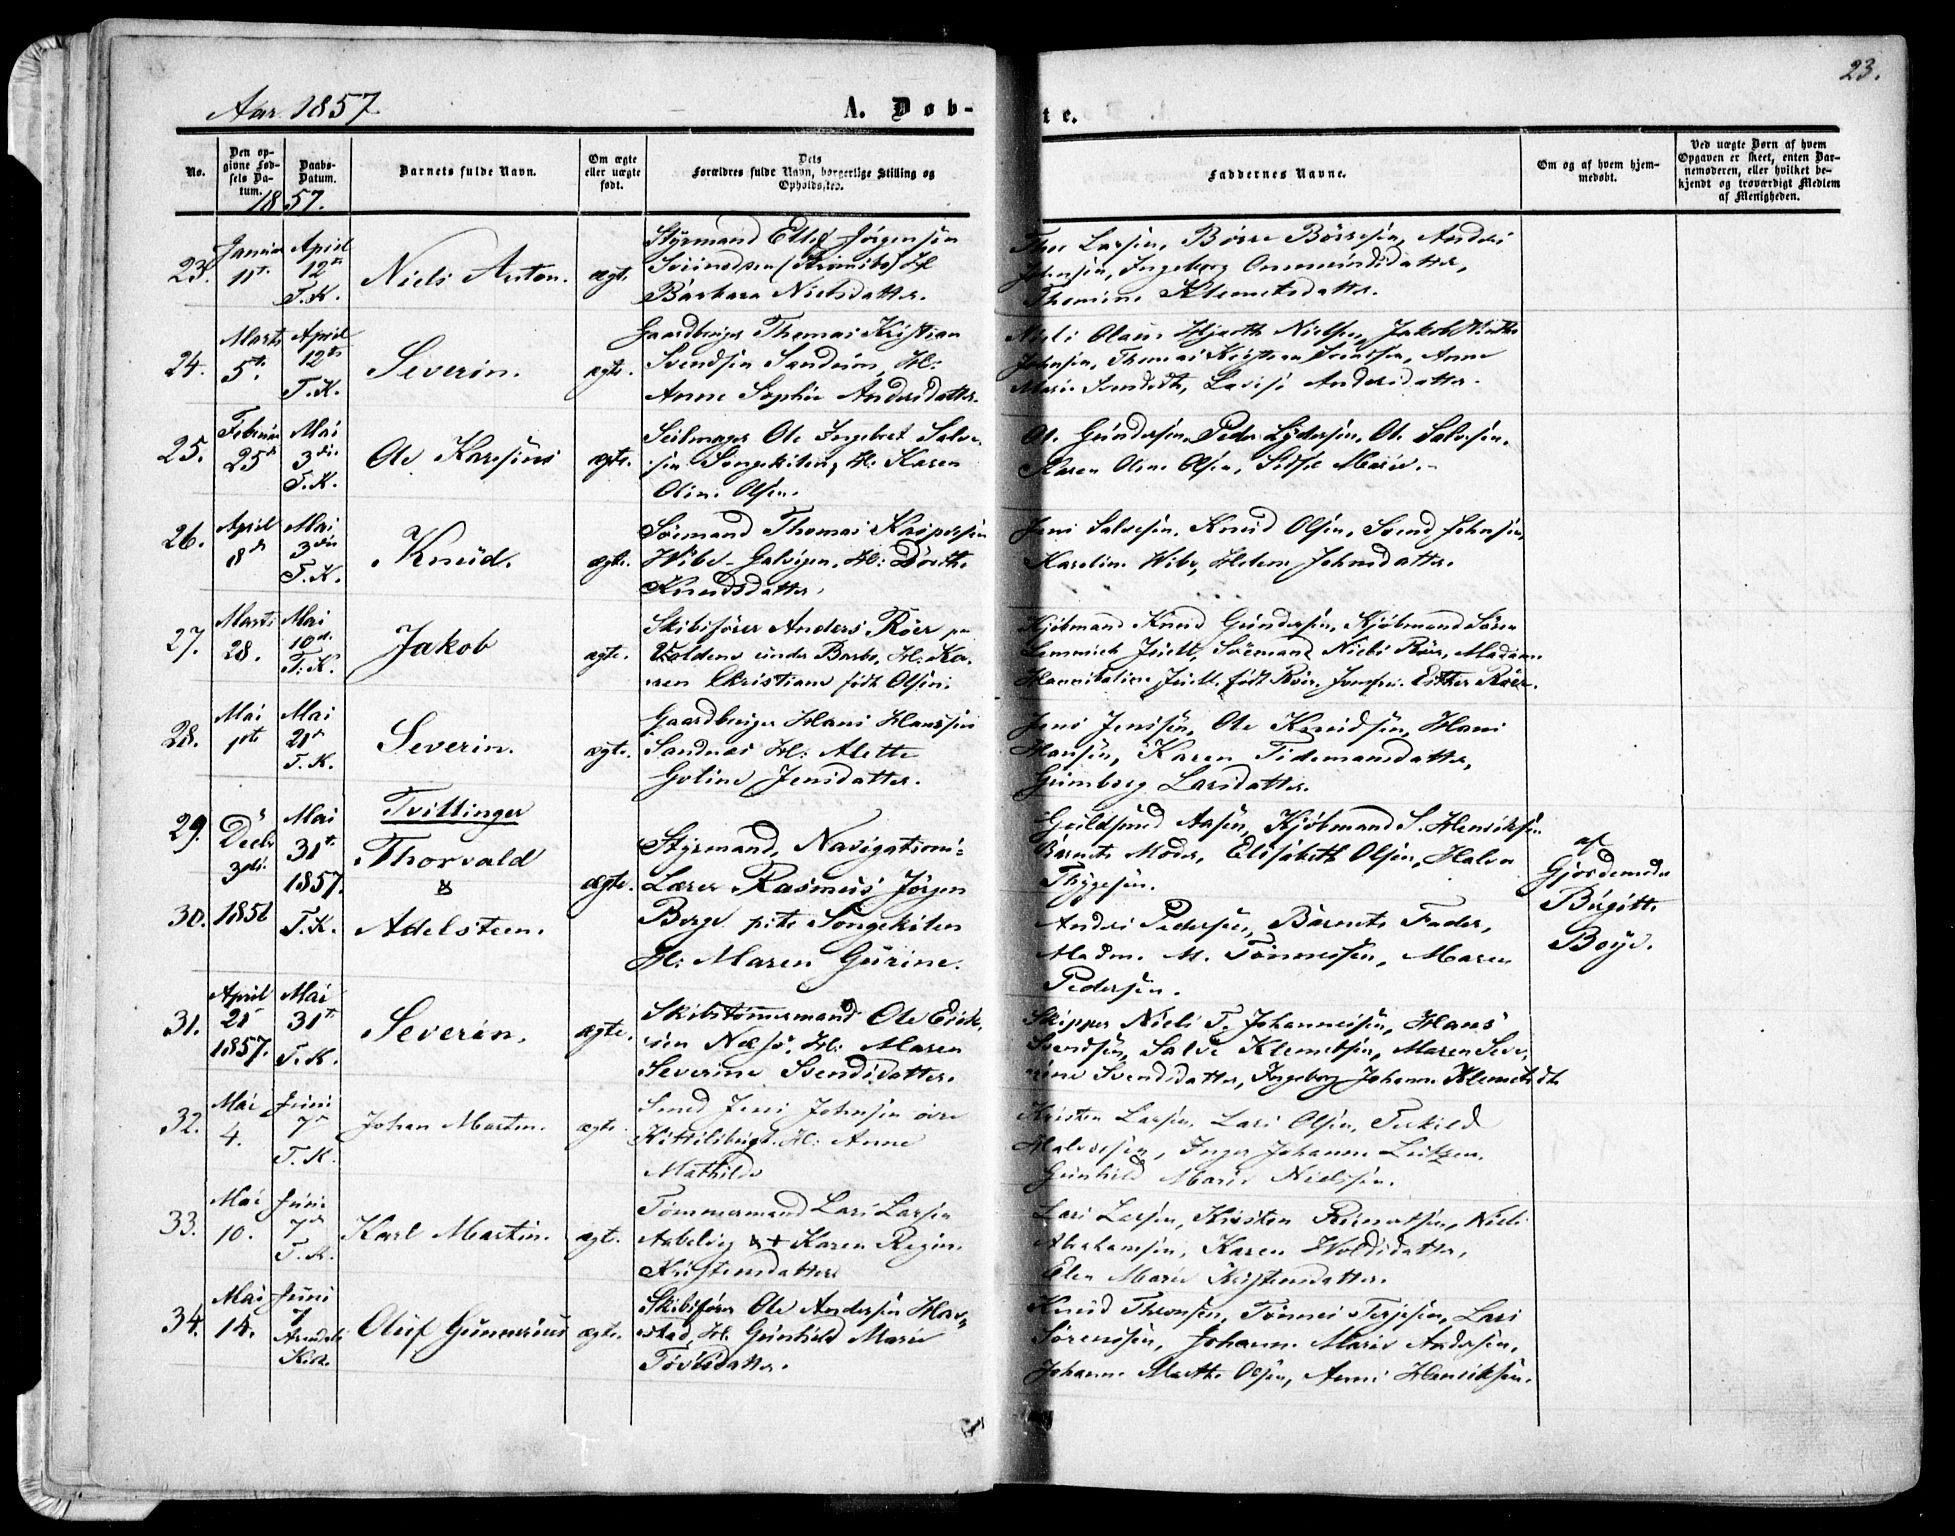 23.
Aar 1857
A. Døb-
te.
No.
Den op-
givne Fød-
sels Da-
tum.
Daabs-
Datum.
1857.
Barnets fulde Navn.
Om ægte
eller uægte
født.
Dets
Forældres fulde Navn, borgerlige Stilling og
Opholdssted.
Faddernes Navne.
Om og af hvem hjem-
medøbt.
Ved uægte Børn af hvem
Opgaven er skeet, enten Bar-
nemoderen, eller hvilket be-
kjendt og troværdigt Medlem
af Menigheden.
23.
Januar
11te
April
12te
T. K.
Niels Anton.
ægt.
Styrmand Ellef Jörgensen
H:
Barbara Nielsdatter.
Thor Larsen, Börre Börresen, Anders
Johnsen, Ingeborg Ommundsdatter,
Thomine Klemetsdatter.
24.
Marts
5te
April
12te
T. K.
Severin.
ægte.
Gaardbruger Thomas Kristian
Svendsen Sandum, H:
Anne Sophie Andersdatter.
Niels Olaus Hjorth Nielsen, Jakob
Johnsen, Thomas Kristian Svendsen, Anne
Marie Svendsdt, Lovise Andersdatter.
25.
Februar
25de
Mai
3die
T. K.
Ole Karesius
ægte.
Seilmager Ole Ingebret Salve-
sen Songekilen, H: Karen
Oline Olsen.
Ol. Gundersen, Peder Lydersen, Ol. Salvesen,
Karen Oline Olsen, Sidsel Marie.
26.
April
8de
Mai
3die
T. K.
Knud.
ægte.
Sömand Thomas Kaspersen
Wibe Galvigen, H: Dorthe
Knudsdatter.
Jens Salvesen, Knud Olsen, Svend Johnsen,
Karoline Wibe, Helene Johnsdatter.
27.
Marts
28.
Mai
10de
T. K.
Jakob
ægte.
Skibsfører Anders Röer paa
Voldene under Barbo, H: Ka-
ren Christiane født Olsen.
Kjöbmand Knud Gundersen, Kjöbmand Sören
Lemmich Juell, Sömand Niels Röer, Madam
Juell født Röer, Jomfru Esther Röer.
28.
Mai
1ste
Mai
21de
T. K.
Severin.
ægte.
Gaardbruger Hans Hanssen
Sandnæs H: Alette
Goline Jensdatter.
Jens Jenssen, Ole Knudsen, Hans
Hansen, Karen Tidemansdatter,
Gunborg Larsdatter.
29.
30.
Decbr
3die
1856
Mai
31te
1857.
T. K.
Tvillinger
Thorvald
&
Adelsteen.
ægte.
Styrmand, Navigations-
Lærer Rasmus Jörgen
Berge Songekilen
H: Maren Gurine.
Guldsmed Aasen, Kjöbmand S. Henriksen
Barnets Moder, Elisabeth Olsen, Halvor
Thygesen.
Anders Pedersen, Barnets Fader,
Madm. M. Tönnesen, Maren
Pedersen.
af
Gjordemoder
Birgitte
Boye.
31.
April
21
1857.
Mai
31te
T. K.
Severin.
ægte.
Skibstømmermand Ole Erik-
sen Næsö, H: Maren
Severine Svendsdatter.
Skipper Niels T. Johannesen, Hans
Svendsen, Salve Klemetsen, Maren Seve-
rine Svendsdatter, Ingeborg Johanne Klemetsdt
32.
Mai
4.
Juni
7de
T. K.
Johan Martin.
ægte.
Smed Jens Johnsen övre
Kittilsbugt. H: Anne
Mathilde
Kristen Larsen, Lars Olsen, Terkild
Halvorsen, Inger Johanne
Gunhild Marie Nielsen.
33.
Mai
10.
Juni
7de
T. K.
Karl Martin.
ægt.
Tømmermand Lars Larsen
Aabelvig & H: Karen Regine
Kristensdatter
Lars Larsen, Kristen, Niels
Abrahamsen, Karen Woldsdatter,
Elen Marie Kristensdatter.
34.
Mai
14.
Juni
7
Arendals
Kirk.
Oluf Gunnerius
ægte.
Skibsfører Ole Andersen Hav-
stad, H: Gunhild Marie
Tovesdatter.
Knud Thronsen, Tönnes Terjesen, Lars
Sörenssen, Johanne Marie Andersen,
Johanne Marthe Olsen, Anne Henriksen.